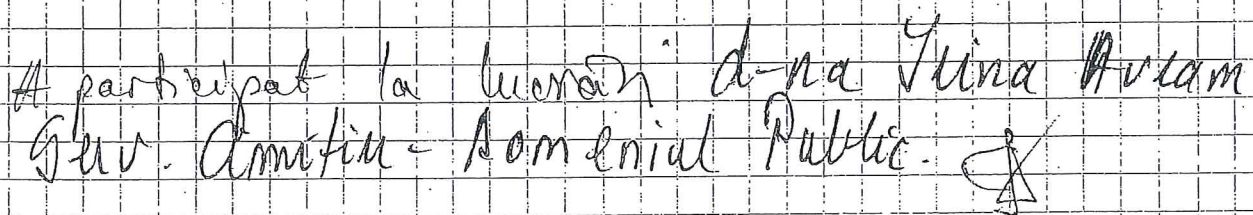 A participat la lucrări d-na Irina Avram
Serv. - Domeniul Public.